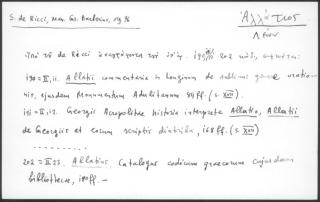 S. de Ricci, Man. Gr. Barberini,
Ἀλλάτιος
τοῦ de Ricci 202
190 = II, 11. Allatii commentaria in Longinum de sublimi genere oratio-
nis, ejusdem Monumentum Adulitanum 94 ff. (s. XVII)
191 = II, 12. Georgii Acropolitae historia interprete Allatio, Allatii
de Georgiis et eorum scriptis diatriba, 168 ff. (s. XVII)
..........
202 = II, 23. Allatius Catalogus codicum graecorum cujusdam
bibliothecae, 180 ff. —